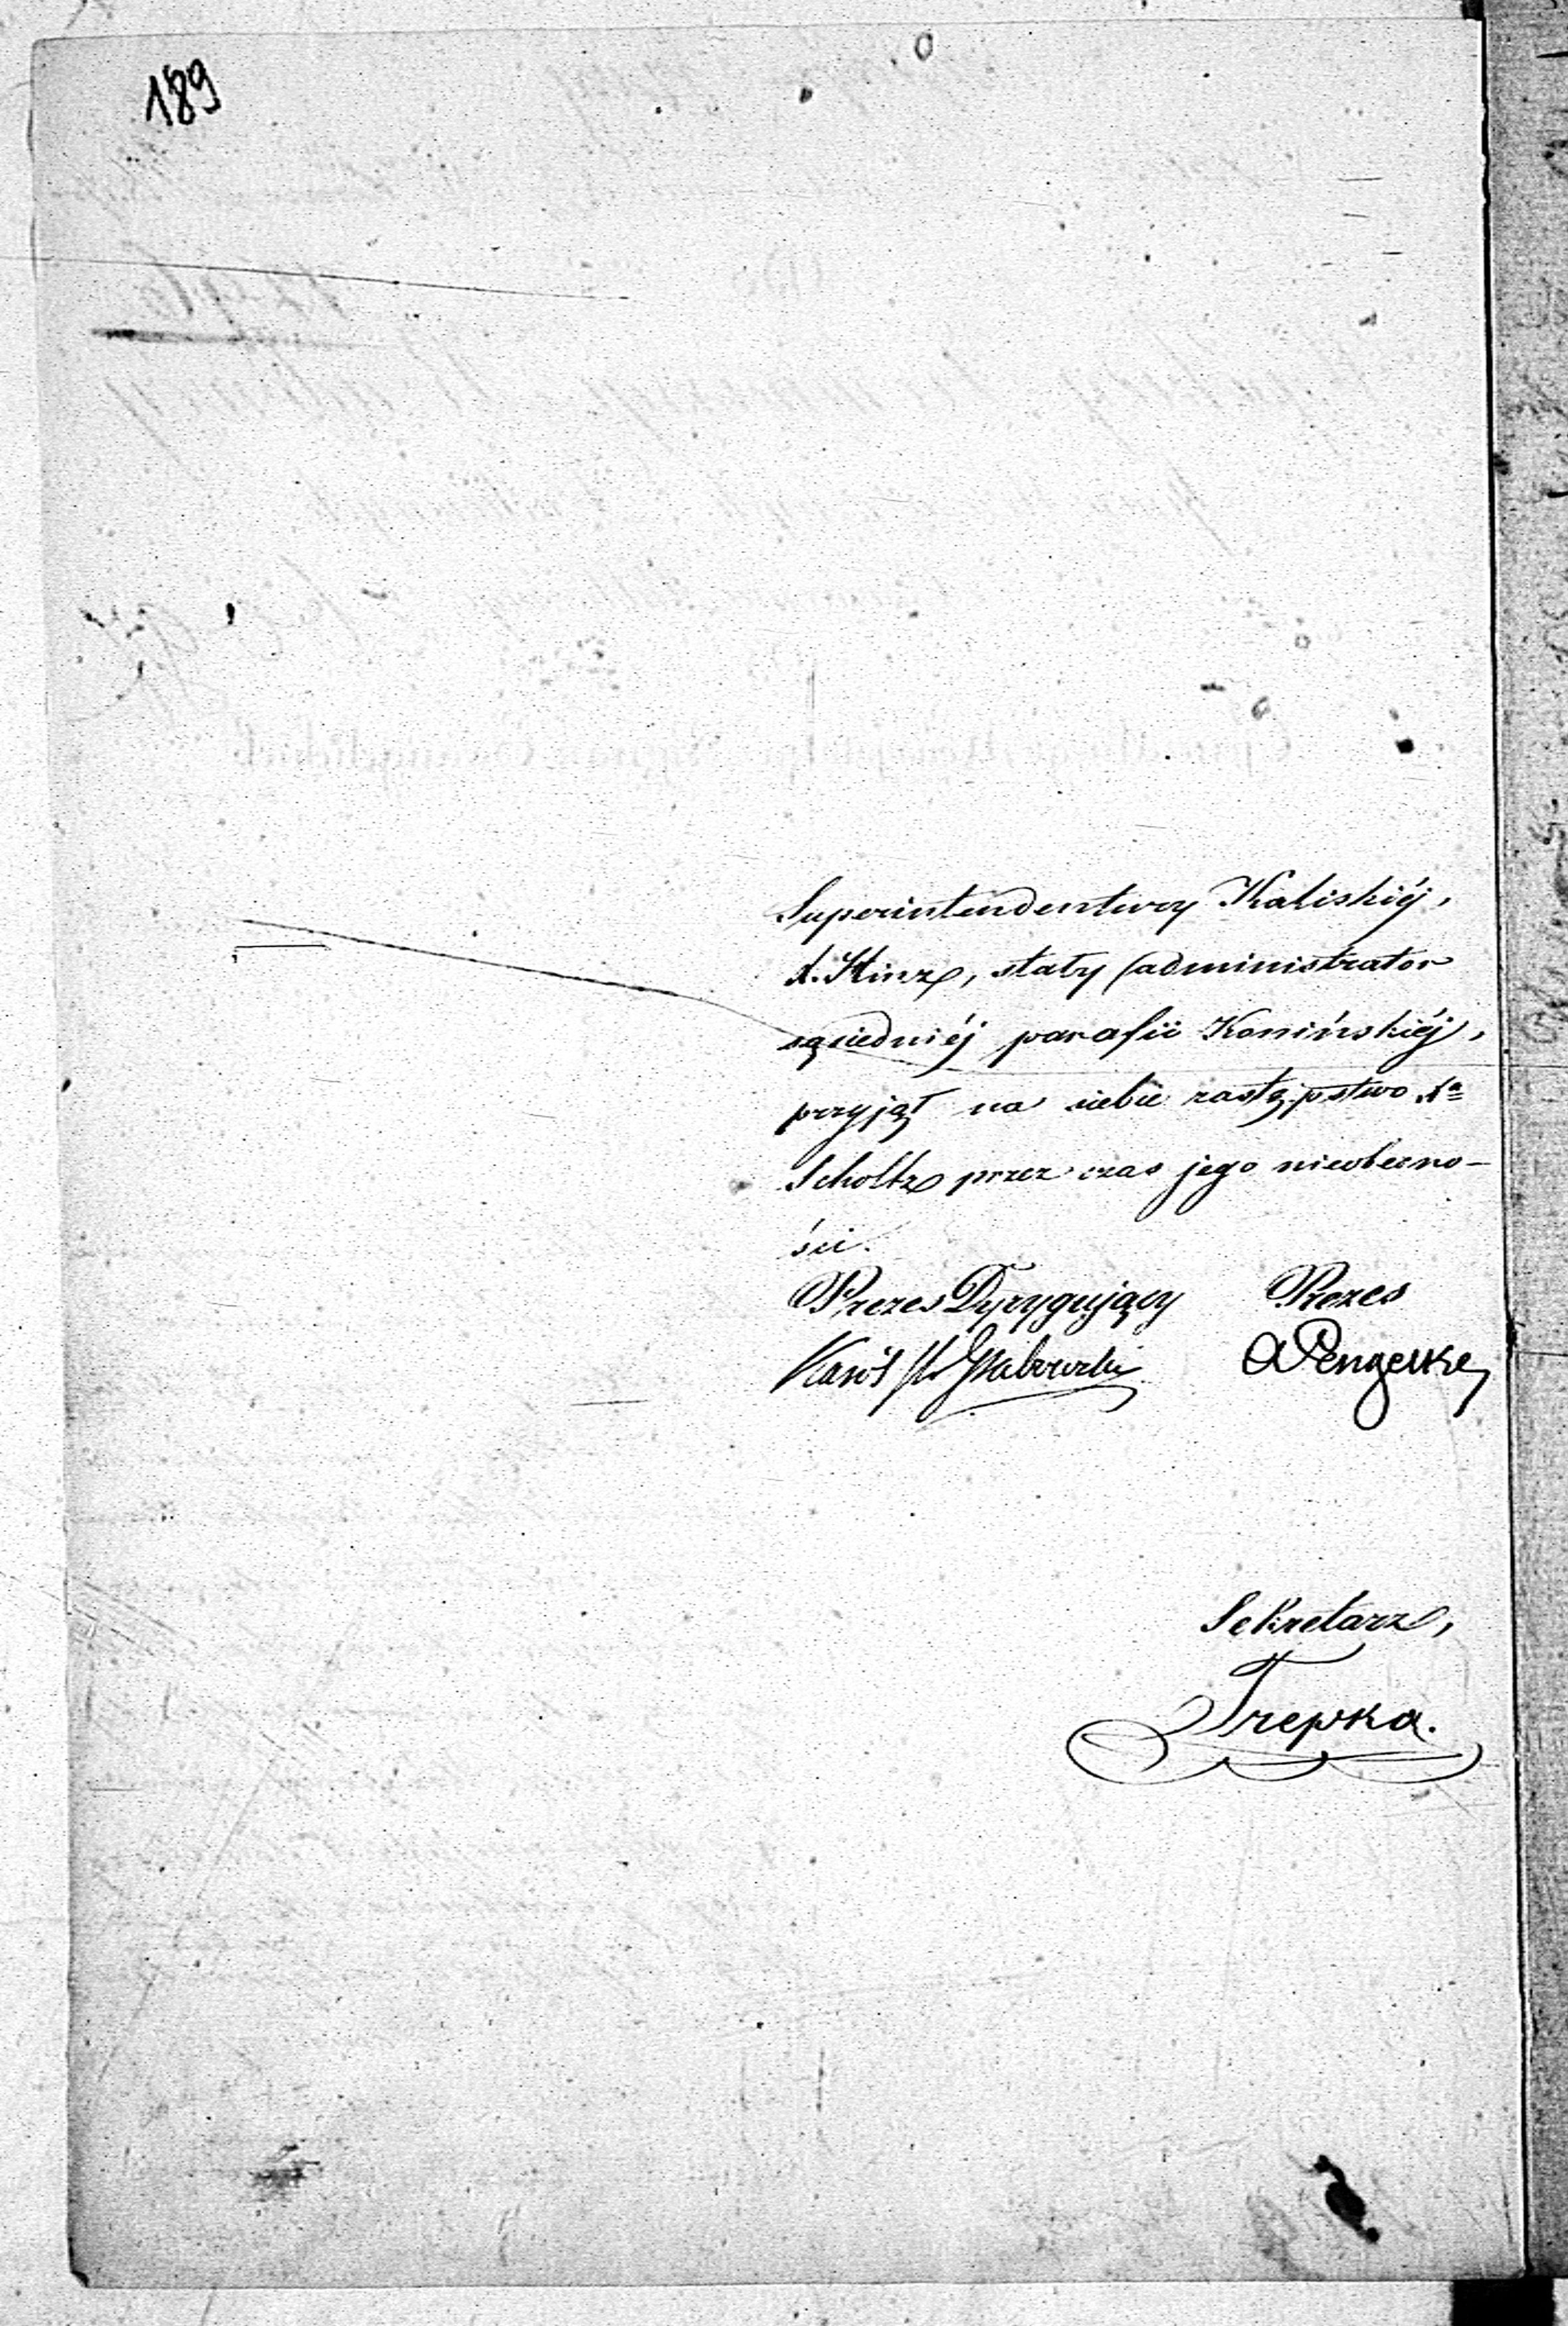 189
Superintendentury Kaliskiéj,
X. Hinz, stały administrator
sąsiedniéj parafii Konińskiéj,
przyjął na siebie zastępstwo Xa
Scholtz przez czas jego nieobecno-
ści.
Prezes Dyrygujący Prezes
Karól
Sekretarz,
Trepka.